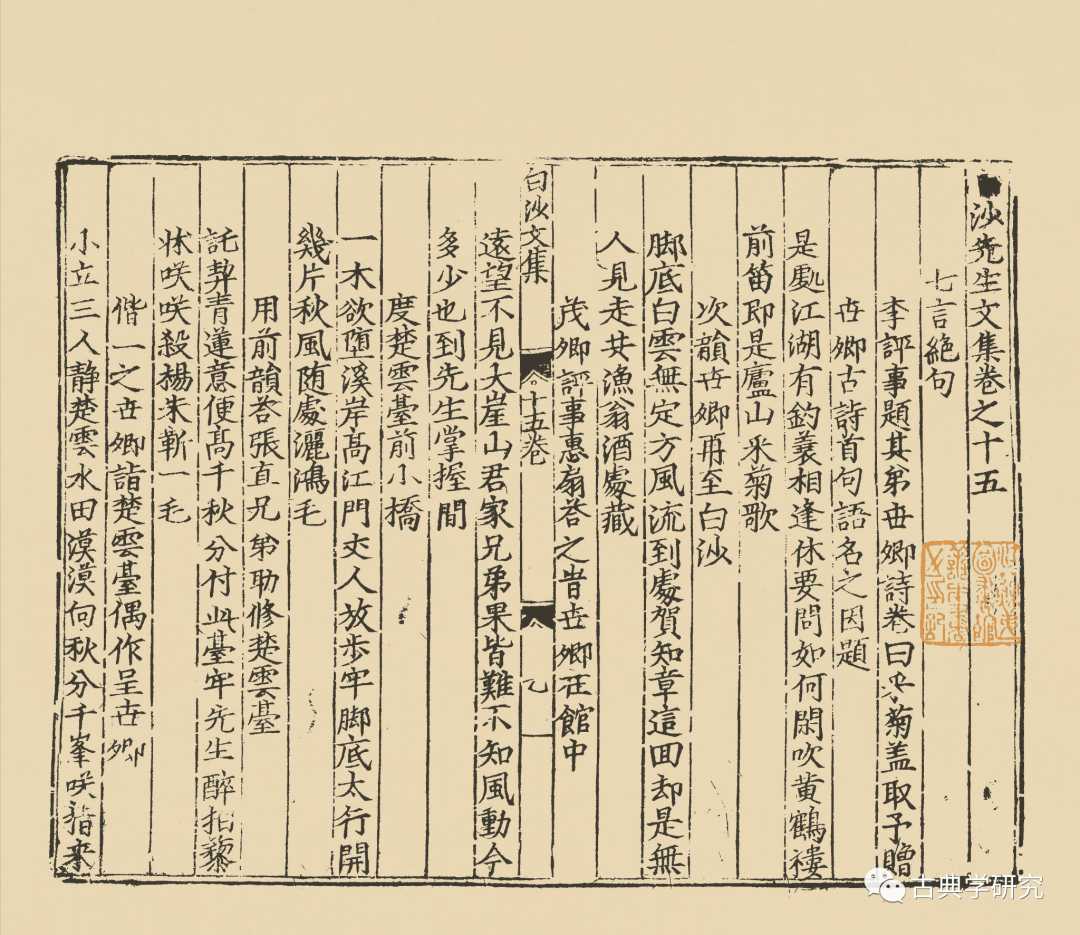 沙先生文集卷之十五
七言絶句
李評事題其弟世卿詩卷曰采菊盖取予贈
世卿古詩首句語名之因題
是處江湖有釣蓑相逢休要問如何閑吹黄鶴樓
前笛即是廬山采菊歌
次韻世卿再至白沙
脚底白雲無定方風流到處賀知章這囬却是無
人見走共漁翁酒處藏
茂卿評事惠扇答之昔世卿在館中
白沙文集
十五卷
乙
遠望不見大崖山君家兄弟果皆難不知風動今
多少也到先生掌握間
度楚雲臺前小橋
一木欲墮溪岸高江門丈人放歩牢脚底太行開
幾片秋風随處灑鴻毛
用前韻答張直兄弟助修楚雲臺
託契青蓮意便高千秋分付此臺牢先生醉拍藜
牀咲咲殺楊朱靳一毛
偕一之世卿詣楚雲臺偶作呈世卿
小立三人静楚雲水田漠漠向秋分千峯咲指来
古典学研究